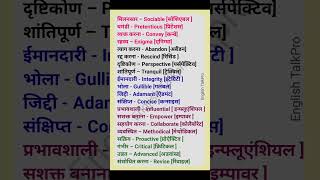 मिलनसार - Sociable [सोशिएबल]
घमंडी - Pretentious [प्रिटेंशस]
व्यक्त करना - Convey [कन्वे]
रहस्य - Enigma [एनिग्मा]
त्याग करना - Abandon [अबैंडन]
रद्द करना - Rescind [रिसिंड]
दृष्टिकोण - Perspective [पर्सपेक्टिव]
शांतिपूर्ण - Tranquil [ट्रैंक्विल]
ईमानदारी - Integrity [इंटेग्रिटी]
भोला - Gullible [गलबल]
जिद्दी - Adamant [ऐडमंट]
संक्षिप्त - Concise [कन्साइस]
प्रभावशाली - Influential [इन्फ्लूएंशियल]
सशक्त बनाना - Empower [इम्पावर]
सहयोग करना - Collaborate [कोलैबोरेट]
व्यवस्थित - Methodical [मेथोडिकल]
सक्रिय - Proactive [प्रोएक्टिव]
गंभीर - Critical [क्रिटिकल]
उन्नत - Advanced [अडवान्स्ड]
संशोधित करना - Revise [रिवाइज़]
English TalkPro